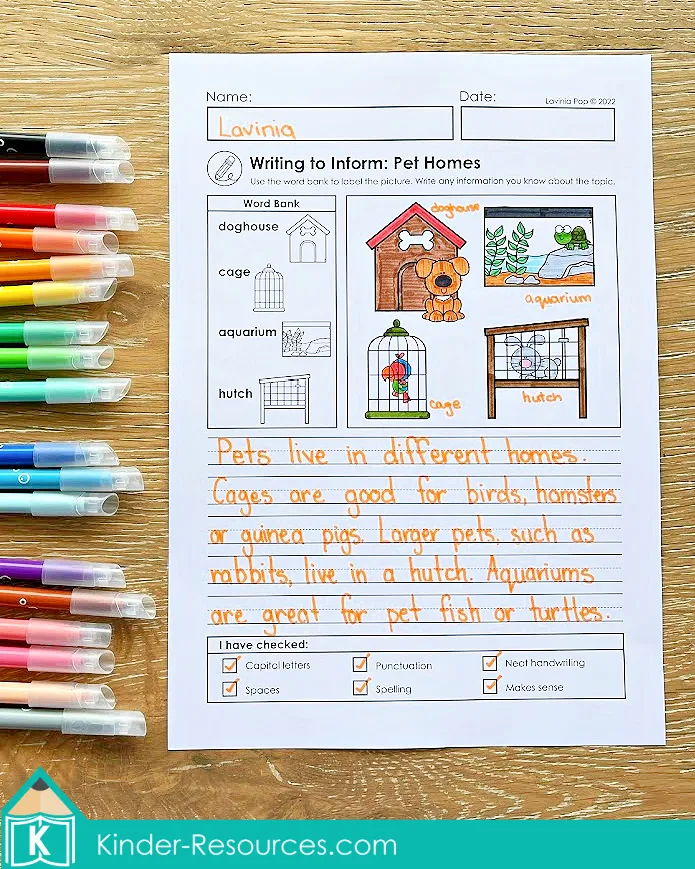 Name:
Date:
Lavinia Pop © 2022
Lavinia
Writing to Inform: Pet Homes
Use the word bank to label the picture. Write any information you know about the topic.
Word Bank
doghouse
cage
aquarium
hutch
doghouse
aquarium
cage
hutch
Pets live in different homes.
Cages are good for birds, hamsters
or guinea pigs. Larger pets, such as
rabbits, live in a hutch. Aquariums
are great for pet fish or turtles.
I have checked:
Capital letters
Punctuation
Neat handwriting
Spaces
Spelling
Makes sense
K
Kinder-Resources.com